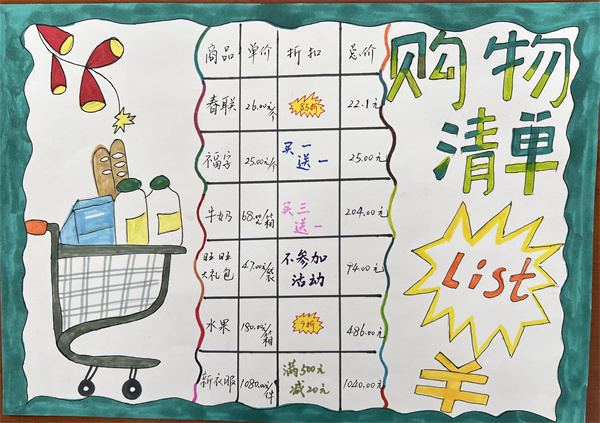 商品 单价 折扣 总价
春联 26.00元/个 85折 22.1元
福字 25.00元/个 买一送一 25.00元
牛奶 68.00元/箱 买三送一 204.00元
旺旺大礼包 47.00元/袋 不参加活动 94.00元
水果 180.00元/箱 9折 486.00元
新衣服 1080.00元/件 满500元减20元 1040.00元
购物
清单
List
¥